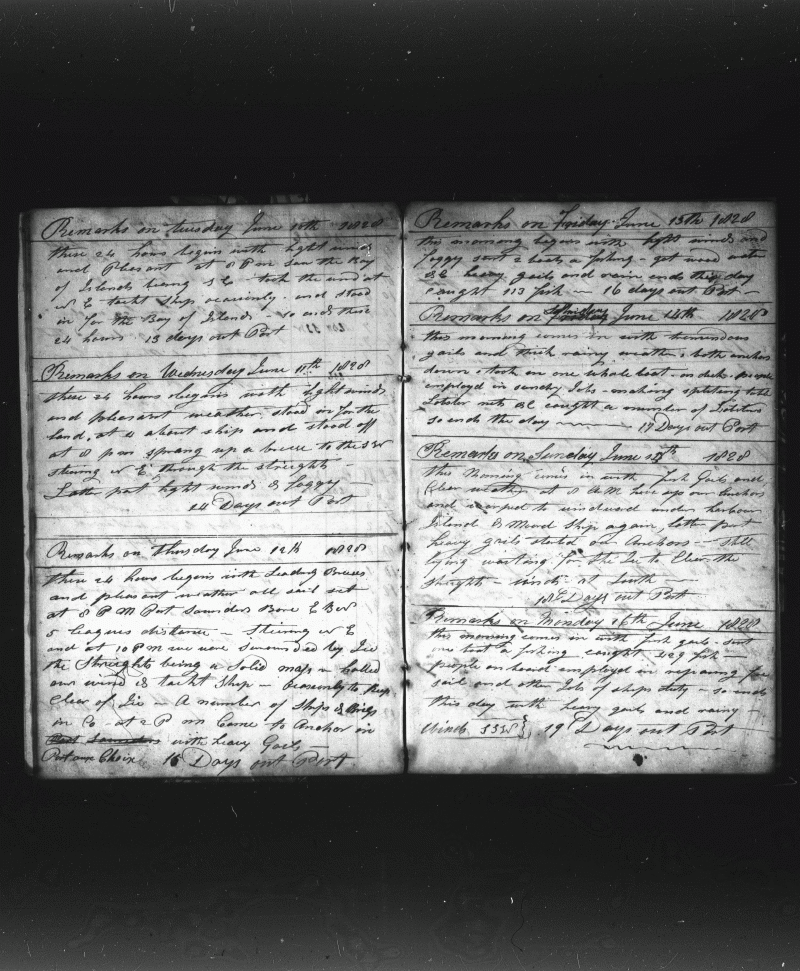 Remarks on tuesday June 10th 1828
these 24 hours begins with light winds
and Pleasant at 8 P m Saw the Bay
of Islands bearing S E - took the wind at
N E - tackt Ship ocasinly - and stood
in for the Bay of Islands - so ends these
24 hours 13 days out Port
Remarks on Wednesday June 11th 1828
these 24 hours begins with light winds
and pleasant weather stood in for the
land, at 4 about ship and stood off
at 8 p m sprang up a breeze to the SW
stering N E through the streights
Latter part light winds & foggy
14 Days out Port
Remarks on thursday June 12th 1828
these 24 hours begins with Leading Breeses
and pleasant weather all sail set
at 8 P M Port Saunders Bore E B N
5 leagues distance - Stering N E
and at 10 P m we were surounded by Ice
the Streights being a Solid mass - hailed
our wind & tackt Ship - ocasinly to keep
Clear of Ice - A number of Ships & Brigs
in Co - at 2 P m Came to Anchor in
Port Saunders with heavy Gails
Port aux Choix 15 Days out Port.
Remarks on Friday June 13th 1828
this morning begins with light winds and
foggy sent 2 boats a fishing - get wood water
&c heavy gails and rain ends this day
caught 113 fish - 16 days out Port
Remarks on Saturday June 14th 1828
this morning comes in with tremendous
gails and thick rainy weather both anchors
down - took in one whale boat - on deck - people
employed in sundry Jobs - making
Lobster nets &c caught a number of Lobsters
so ends the day 17 Days out Port
Remarks on Sunday June 15th 1828
this Morning comes in with fresh Gails and
Clear weather at 8 A M hove up our Anchors
and to windward under harbour
Island & Moord Ship again, latter part
heavy gails on Anchors - still
lying waiting for the Ice to Clear the
streights - winds at South
18th Days out Port
Remarks on Monday 16th June 1828
this morning comes in with fresh gails - sent
one boat a fishing - caught 229 fish
people on board employed in repairing
sails and other Jobs of ships duty - so ends
this day with heavy gails and rainy -
Winds SSW } 19 Days out Port